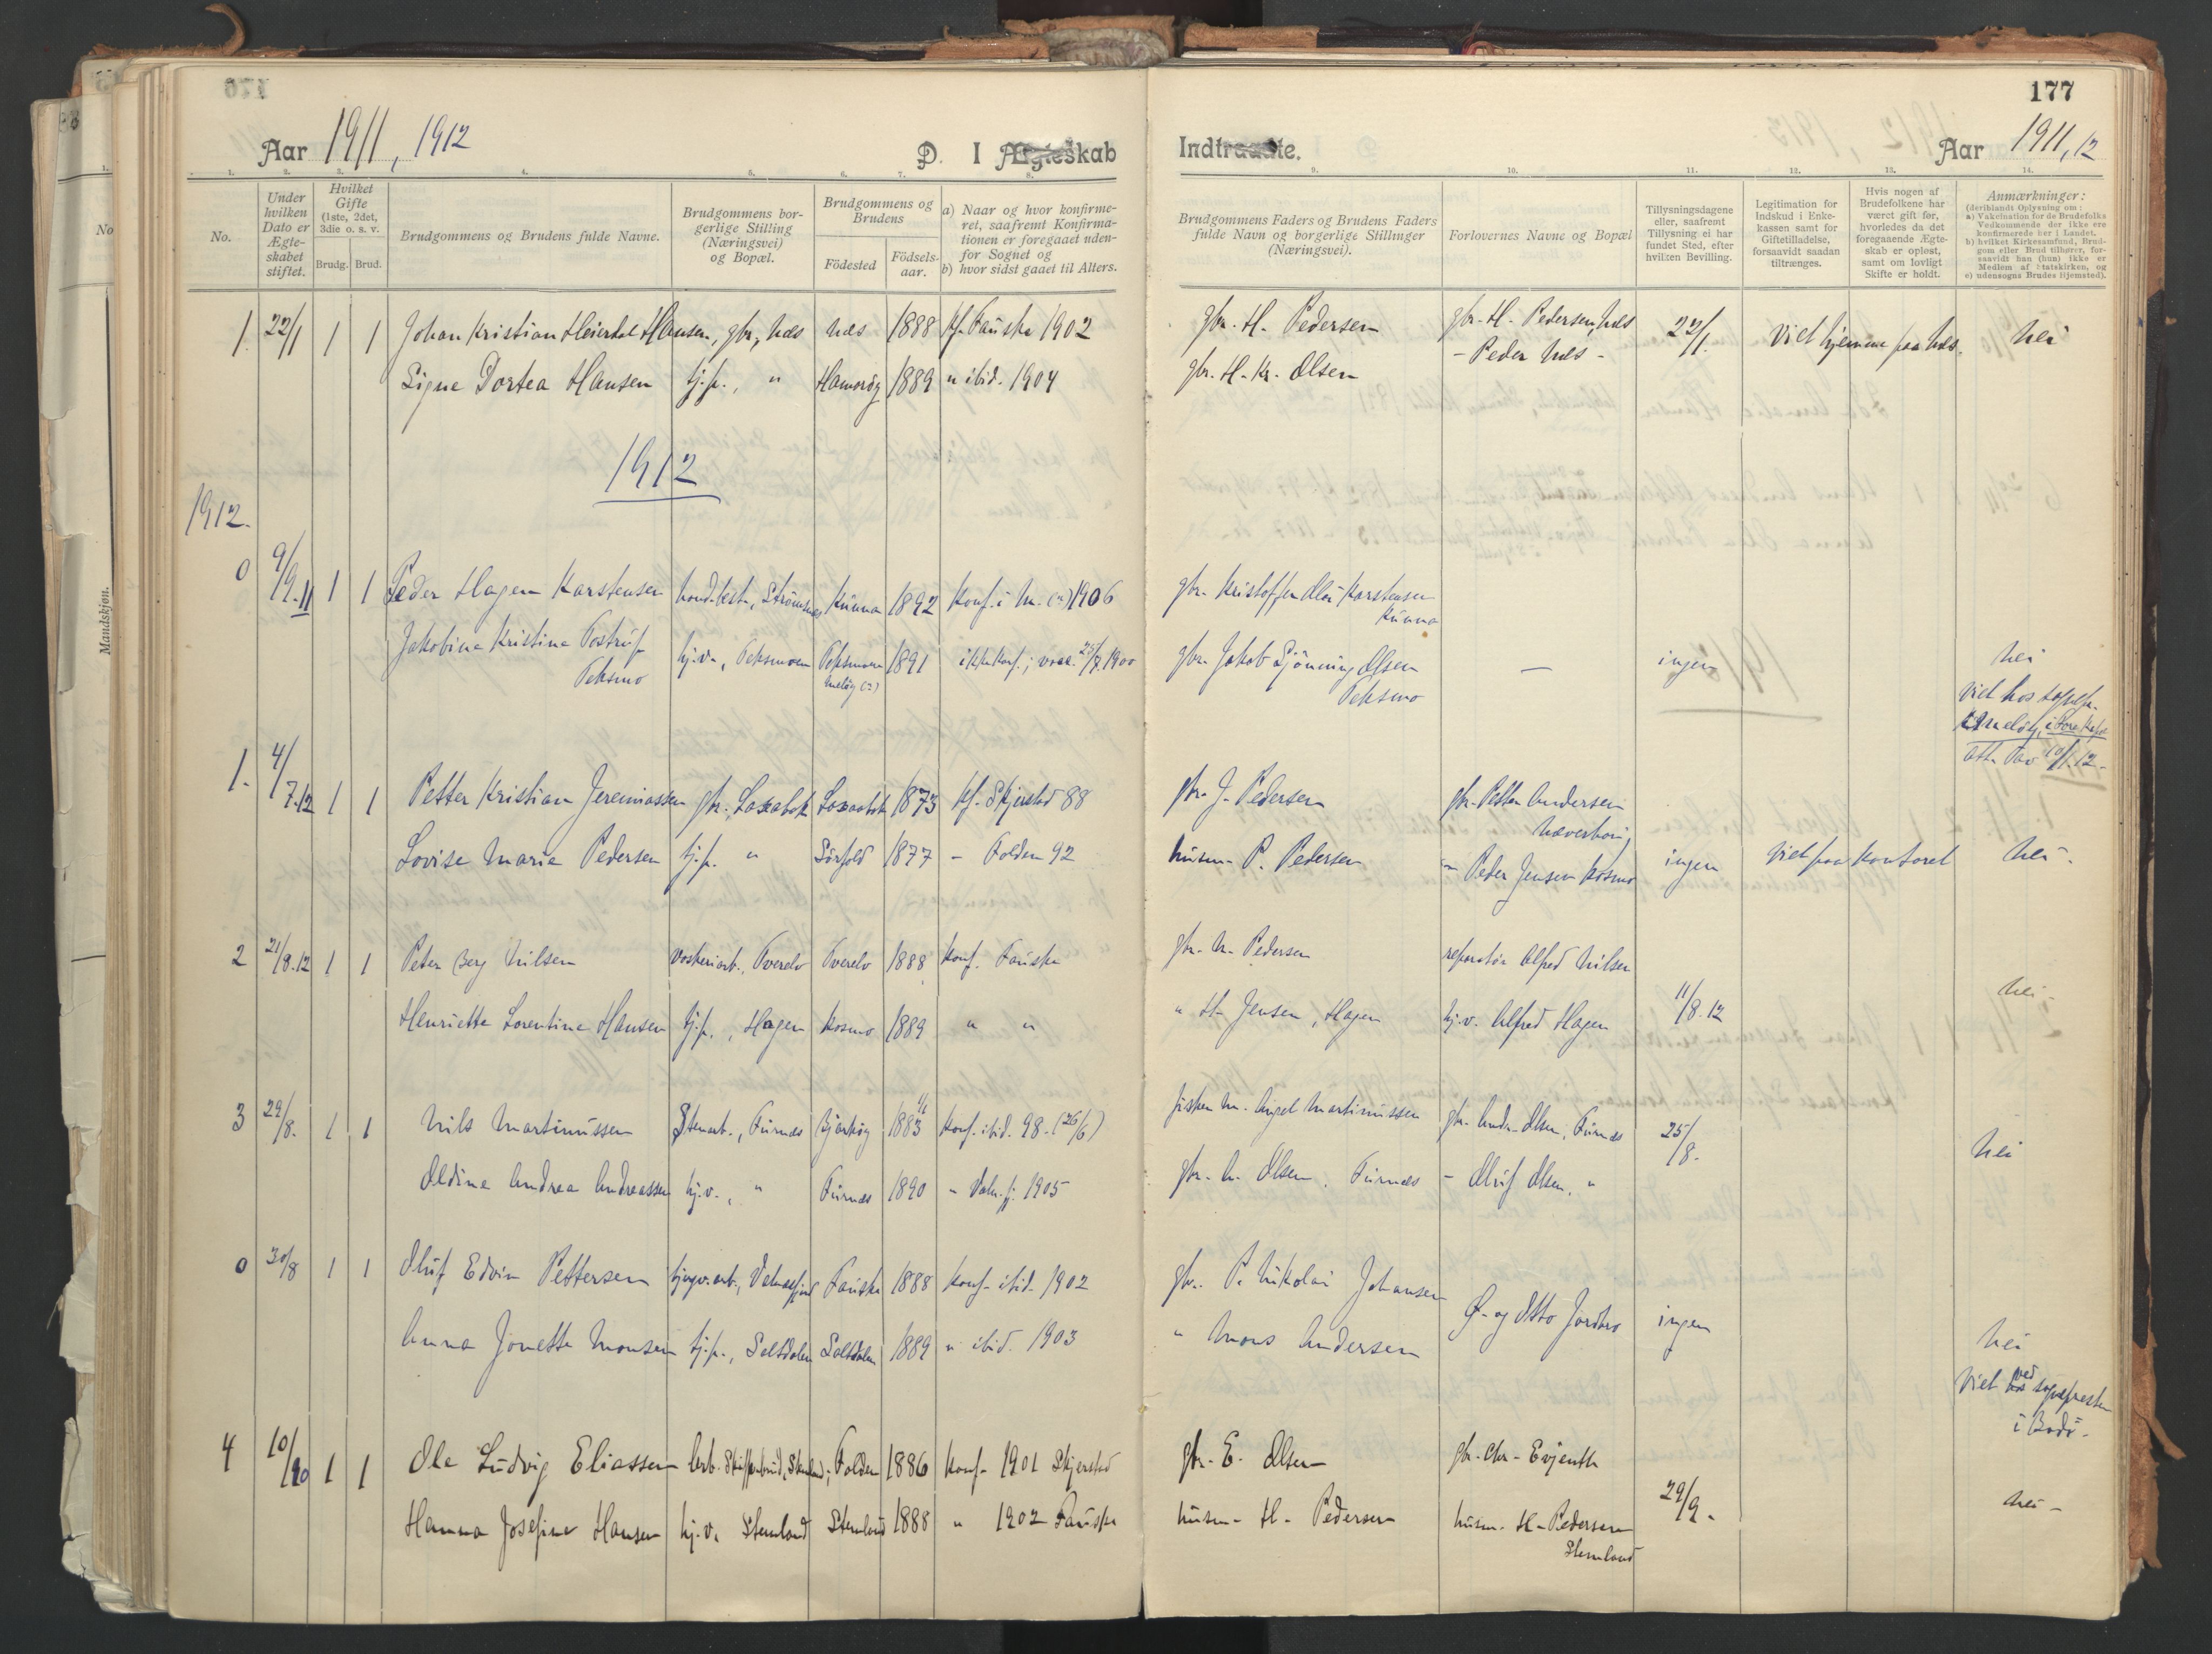 177
Aar 1911, 1912
D. I Ægteskab
Indtraadte.
Aar 1911, 12
1. 2. 3. 4. 5. 6. 7. 8. 9. 10. 11. 12. 13. 14.
No.
Under hvilken Dato er Ægteskabet stiftet.
Hvilket Gifte (1ste, 2det, 3die o. s. v.
Brudg. Brud.
Brudgommens og Brudens fulde Navne.
Brudgommens borgerlige Stilling (Næringsvei) og Bopæl.
Brudgommens og Brudens
Fødested
Fødselsaar.
a) Naar og hvor konfirmeret, saafremt Konfirmationen er foregaaet udenfor Sognet og
b) hvor sidst gaaet til Alters.
Brudgommens Faders og Brudens Faders fulde Navn og borgerlige Stillinger (Næringsvei).
Forlovernes Navne og Bopæl
Tillysningsdagene eller, saafremt Tillysning ei har fundet Sted, efter hvilken Bevilling.
Legitimation for Indskud i Enkekassen samt for Giftetilladelse, forsaavidt saadan tiltrænges.
Hvis nogen af Brudefolkene har været gift før, hvorledes da det foregaaende Ægteskab er opløst, samt om lovligt Skifte er holdt.
Anmærkninger:
(deriblandt Oplysning om:
a) Vakcination for de Brudefolks Vedkommende der ikke ere konfirmerede her i Landet.
b) hvilket Kirkesamfund, Brudgom eller Brud tilhører, forsaavidt han (hun) ikke er Medlem af Statskirken, og
c) udensogns Brudes Hjemsted).
1. 22/1 1 1 Johan Kristian Heierdal Hansen, gbr., Nes Nes 1888 Kf. Fauske 1902 gbr. H. Pedersen gbr. H. Pedersen, Nes 22/1. Viet hjemme paa Nes. Nei
Signe Dortea Hansen tj.p., " Hamarøy 1889 " ibid. 1904 gbr. H. Kr. Olsen - Peder Nes -
1912
1912.
0 9/9.11 1 1 Peder Hagen Karstensen Kunna 1892 Konf. i M. (2) 1906 gbr. Kristoffer Karstensen Kunna
Jakobine Kristine Tostrup Teksmo hj.v., Teksmoen Teksmoen Meløy (2) 1891 ikke konf.; 1900 gbr. Jakob Olsen Teksmo — ingen Nei
Viet hos sognepr.
Meløy, i Fore Kapel
1. 4/7.12 1 1 Petter Kristian Jeremiassen gbr., 1873 Kf. Skjerstad 88 gbr. J. Pedersen gbr. Petter Andersen
Lovise Marie Pedersen tj.p. " Sørfold 1877 - Folden 92 husm. P. Pedersen " Peder Jensen Kosmo ingen Viet paa Kontoret Nei.
2 21/8.12 1 1 Peter Berg Nilsen Tverelv Tverelv 1888 Konf. Fauske gbr. N. Pedersen reparatør Alfred Nilsen
Henriette Lorentine Hansen tj.p., Hagen Kosmo 1889 " " " H. Jensen, Hagen hj.v. Alfred Hagen 11/8.12 Nei -
3 29/8. 1 1 Nils Martinussen Stenarb., Furnes Bjarkøy 1883 Konf. ibid. 98. (26/6) fisker M. Angel Martinussen gbr. Andr. Olsen, Furnes 25/8. Nei
Oldine Andrea Andreassen hj.v., " Furnes 1890 " Valn.fj. 1905 gbr. A. Olsen, Furnes - Oluf Olsen, "
0 30/8 1 1 Oluf Edvin Pettersen Fauske 1888 Konf. ibid. 1902 gbr. P. Nikolai Johansen
Anna Jonette Monsen tj.p., Saltdalen Saltdalen 1889 " ibid. 1903 " Mons Andersen Ø. og Otto Jordbro ingen Nei
Viet ved sognepresten
i Bodø.
4 10/10 1 1 Ole Ludvig Eliassen Folden 1886 Konf. 1901 Skjerstad gbr. E. Olsen gbr. Chr. Evjenth
Hanna Josefine Hansen hj.v. Stemland Stemland 1888 " 1902 Fauske husm. H. Pedersen husm. H. Pedersen Stemland 29/9. Nei -
No
Mandskjøn.